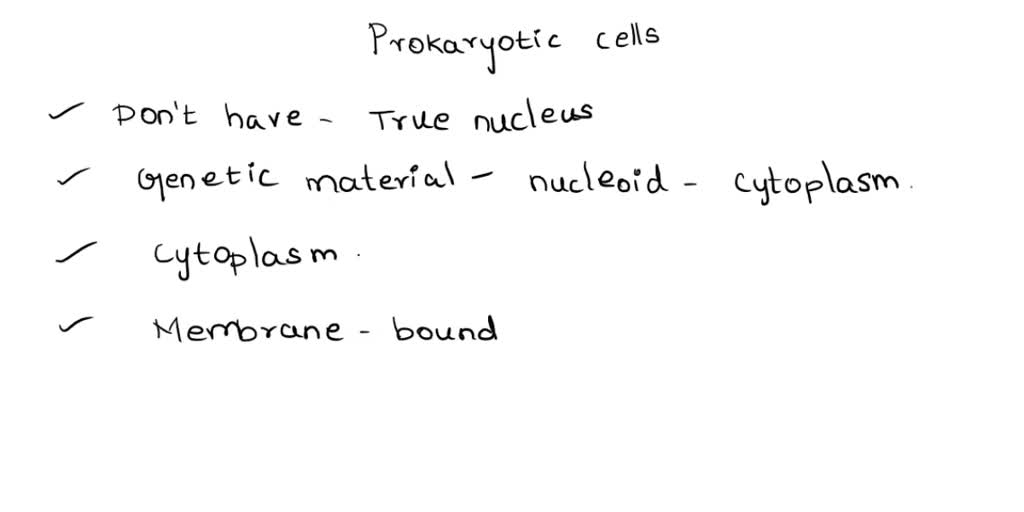 Prokaryotic cells
✓ Don't have - True nucleus
✓ Genetic material - nucleoid - cytoplasm.
✓ cytoplasm.
✓ Membrane - bound